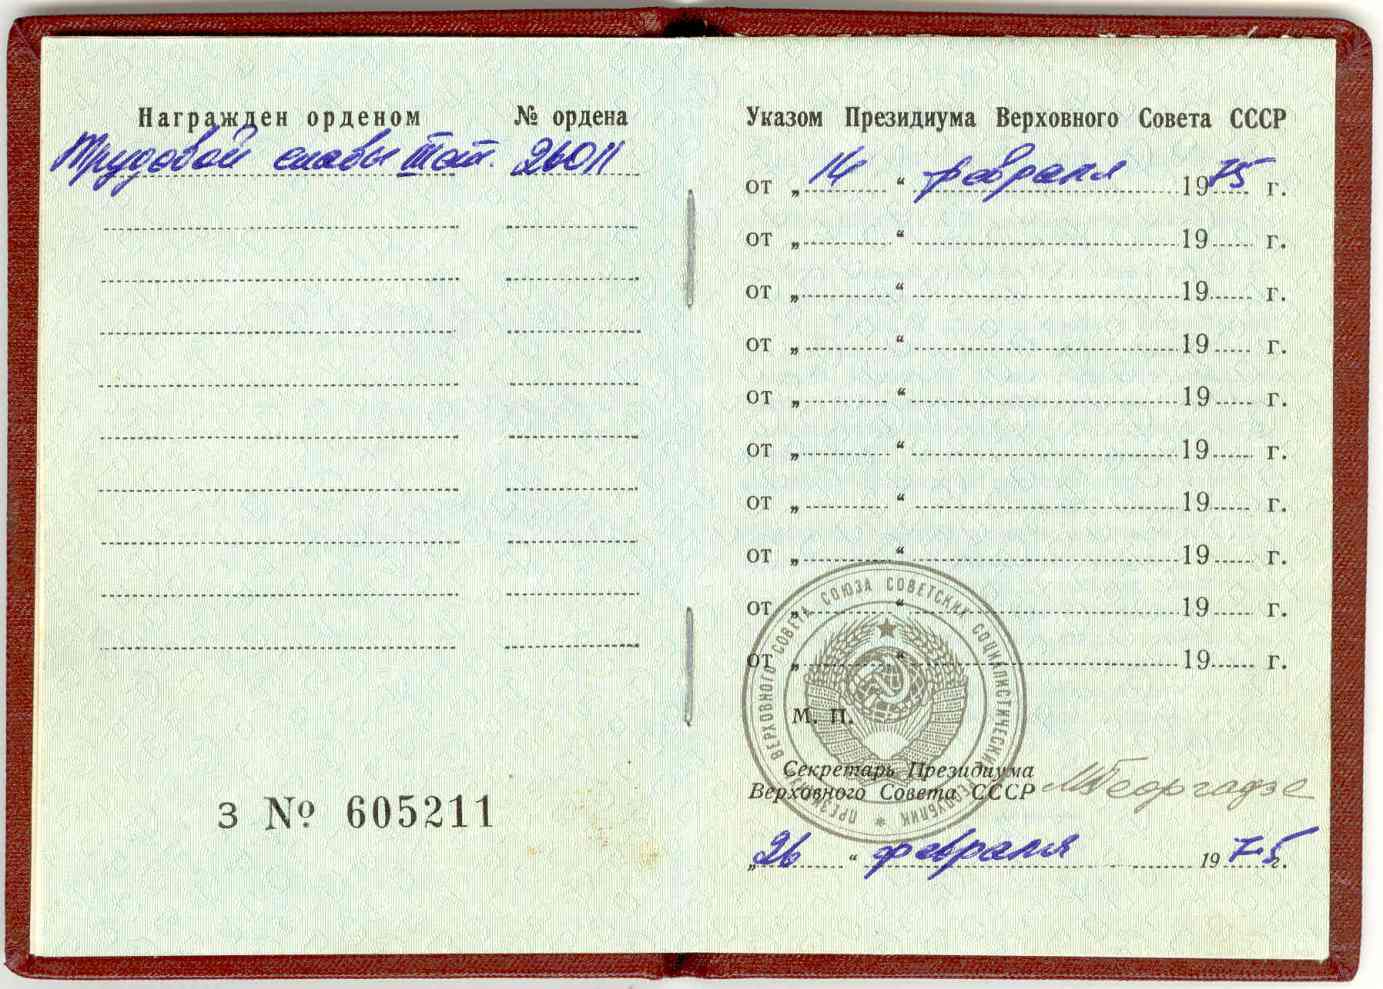 Награжден орденом № ордена
Трудовой славы III ст. 26011
З № 605211
Указом Президиума Верховного Совета СССР
от „ 14 “ февраля 1975 г.
от „ “ 19 г.
от „ “ 19 г.
от „ “ 19 г.
от „ “ 19 г.
от „ “ 19 г.
от „ “ 19 г.
от „ “ 19 г.
от „ “ 19 г.
от „ “ 19 г.
М. П.
ПРЕЗИДИУМ ВЕРХОВНОГО СОВЕТА СОЮЗА СОВЕТСКИХ СОЦИАЛИСТИЧЕСКИХ РЕСПУБЛИК
Секретарь Президиума
Верховного Совета СССР МГеоргадзе
„ 26 “ февраля 1975 г.